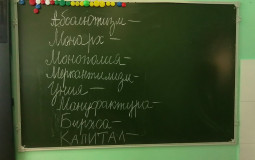 Абсолютизм —
Монарх —
Монополия —
Меркантилизм —
Уния —
Мануфактура —
Биржа —
КАПИТАЛ —